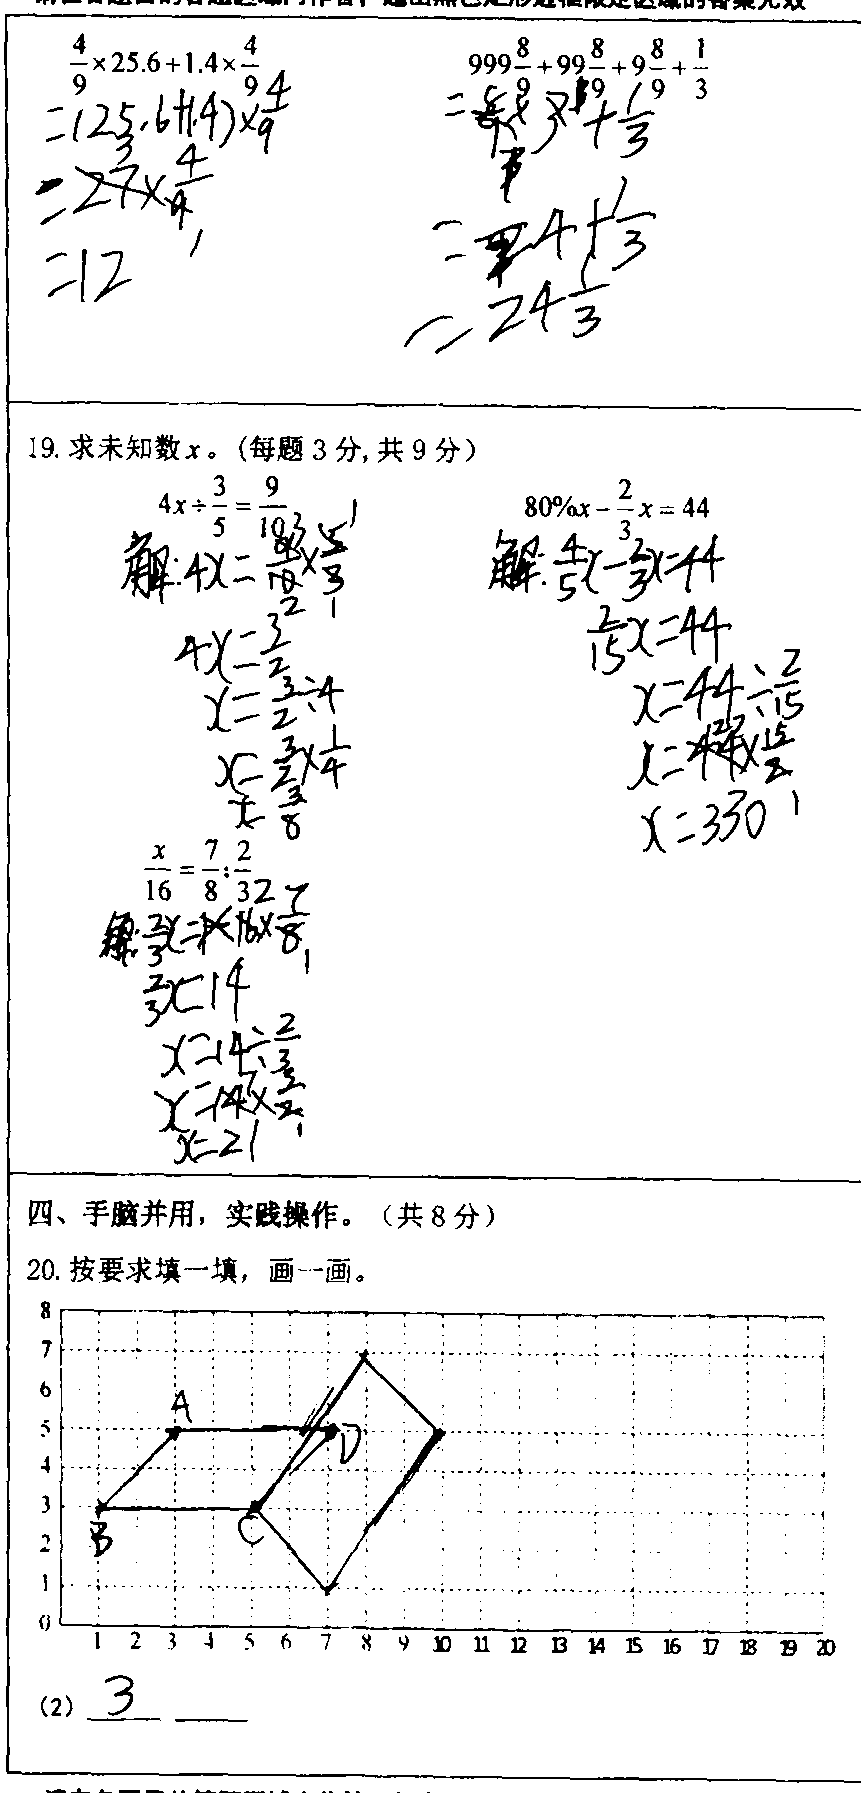 4/9×25.6+1.4×4/9
=(25.6+1.4)×4/9
=27×4/9
=12
999 8/9+99 8/9+9 8/9+1/3
+1/3
=24 1/3
19. 求未知数x。(每题3分,共9分)
4x÷3/5=9/10
解:4x=9/10×5/3
4x=3/2
x=3/2÷4
x=3/2×1/4
x=3/8
80%x-2/3x=44
解:4/5x-2/3x=44
2/15x=44
x=44÷2/15
x=44×15/2
x=330
x/16=7/8:2/3
解:2/3x=16×7/8
2/3x=14
x=14÷2/3
x=14×3/2
x=21
四、手脑并用，实践操作。（共8分）
20. 按要求填一填，画一画。
8
7
6
5
4
3
2
1
0
A
D
B
C
1 2 3 4 5 6 7 8 9 10 11 12 13 14 15 16 17 18 19 20
(2) 3